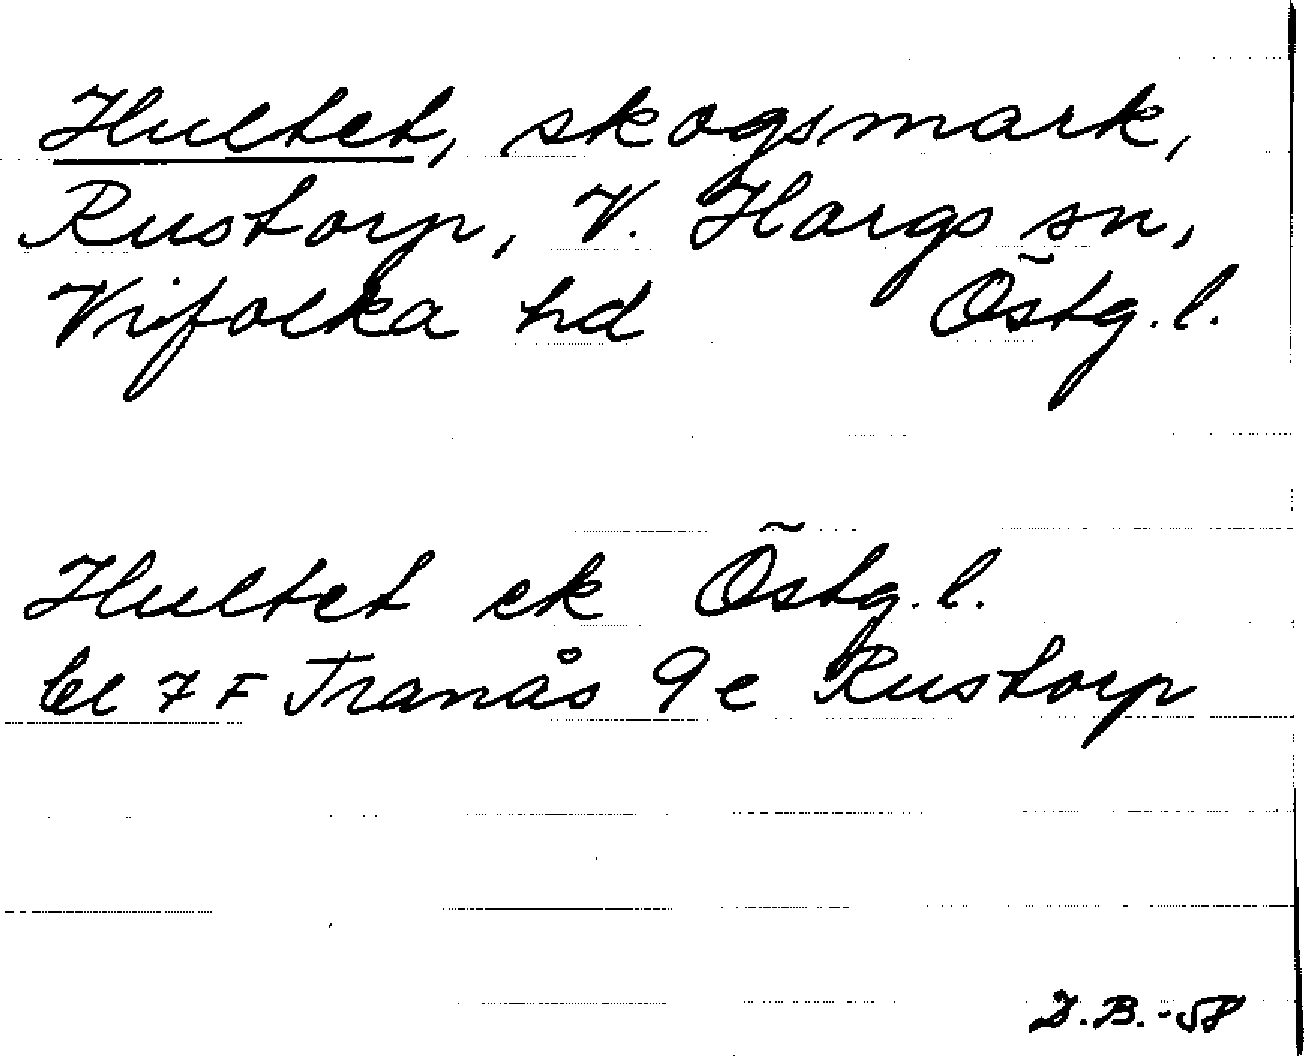 Hultet, skogsmark,
Rustorp, V. Hargs sn,
Vifolka hd Östg. l.
Hultet ek Östg. l.
bl 7 F Tranås 9 e Rustorp
D.B.-58